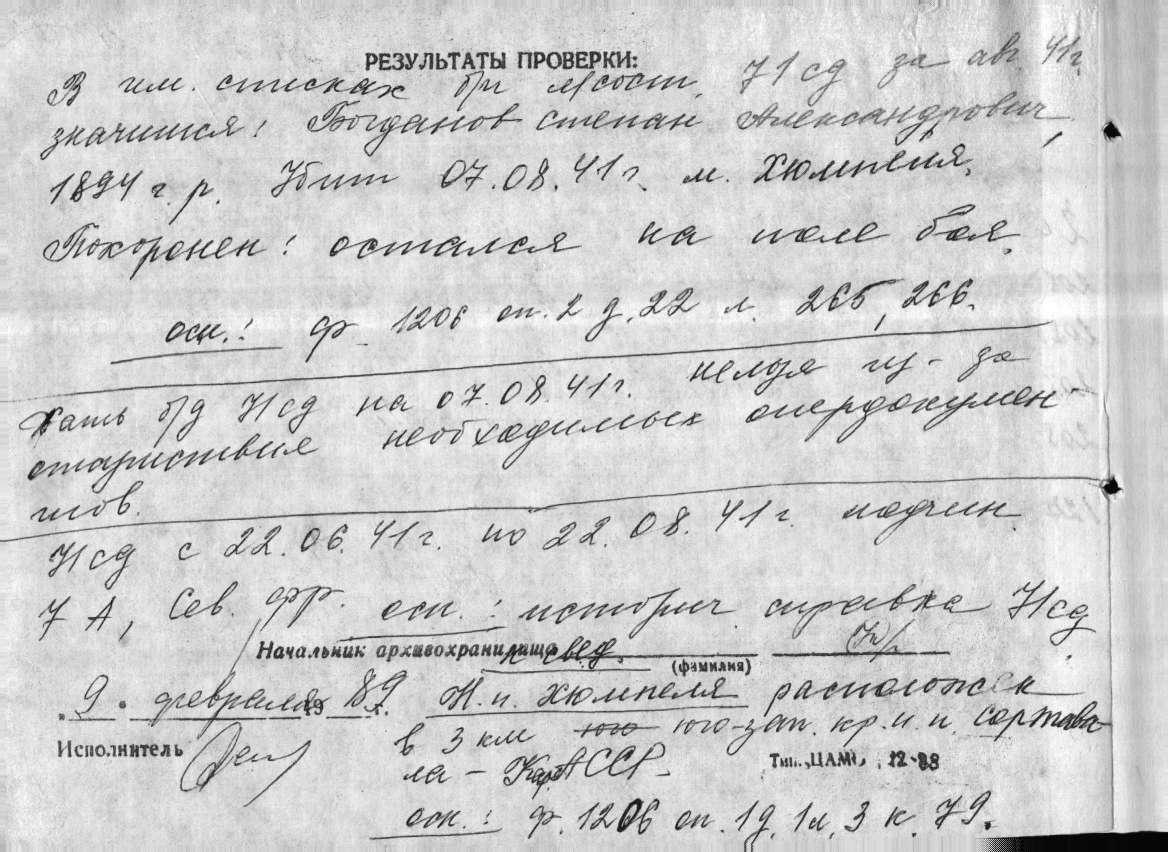 РЕЗУЛЬТАТЫ ПРОВЕРКИ:
В им. списках б/п л/сост. 71 сд за авг. 41г.
значится: Богданов Степан Александрович,
1894 г.р. Убит 07.08.41г. м. Хюмпеля.
Похоронен: остался на поле боя.
осн.: ф. 1206 оп. 2 д. 22 л. 265, 266.
Дать б/д 71сд на 07.08.41г. нельзя из-за
отсутствия необходимых опердокумен
тов.
71сд с 22.06.41г. по 22.08.41г. подчин.
7 А, Сев. фр. осн.: историч. справка 71сд
Начальник архивохранилища
к свед.
(фамилия)
"9" февраля 1989 г. Н.п. Хюмпеля расположен
в 3 км юго юго-зап. кр. н.п. Сортава
Исполнитель
ла - КарАССР.
Тип. ЦАМО, 12-88
осн.: ф. 1206 оп. 1 д. 1 л. 3 к. 79.